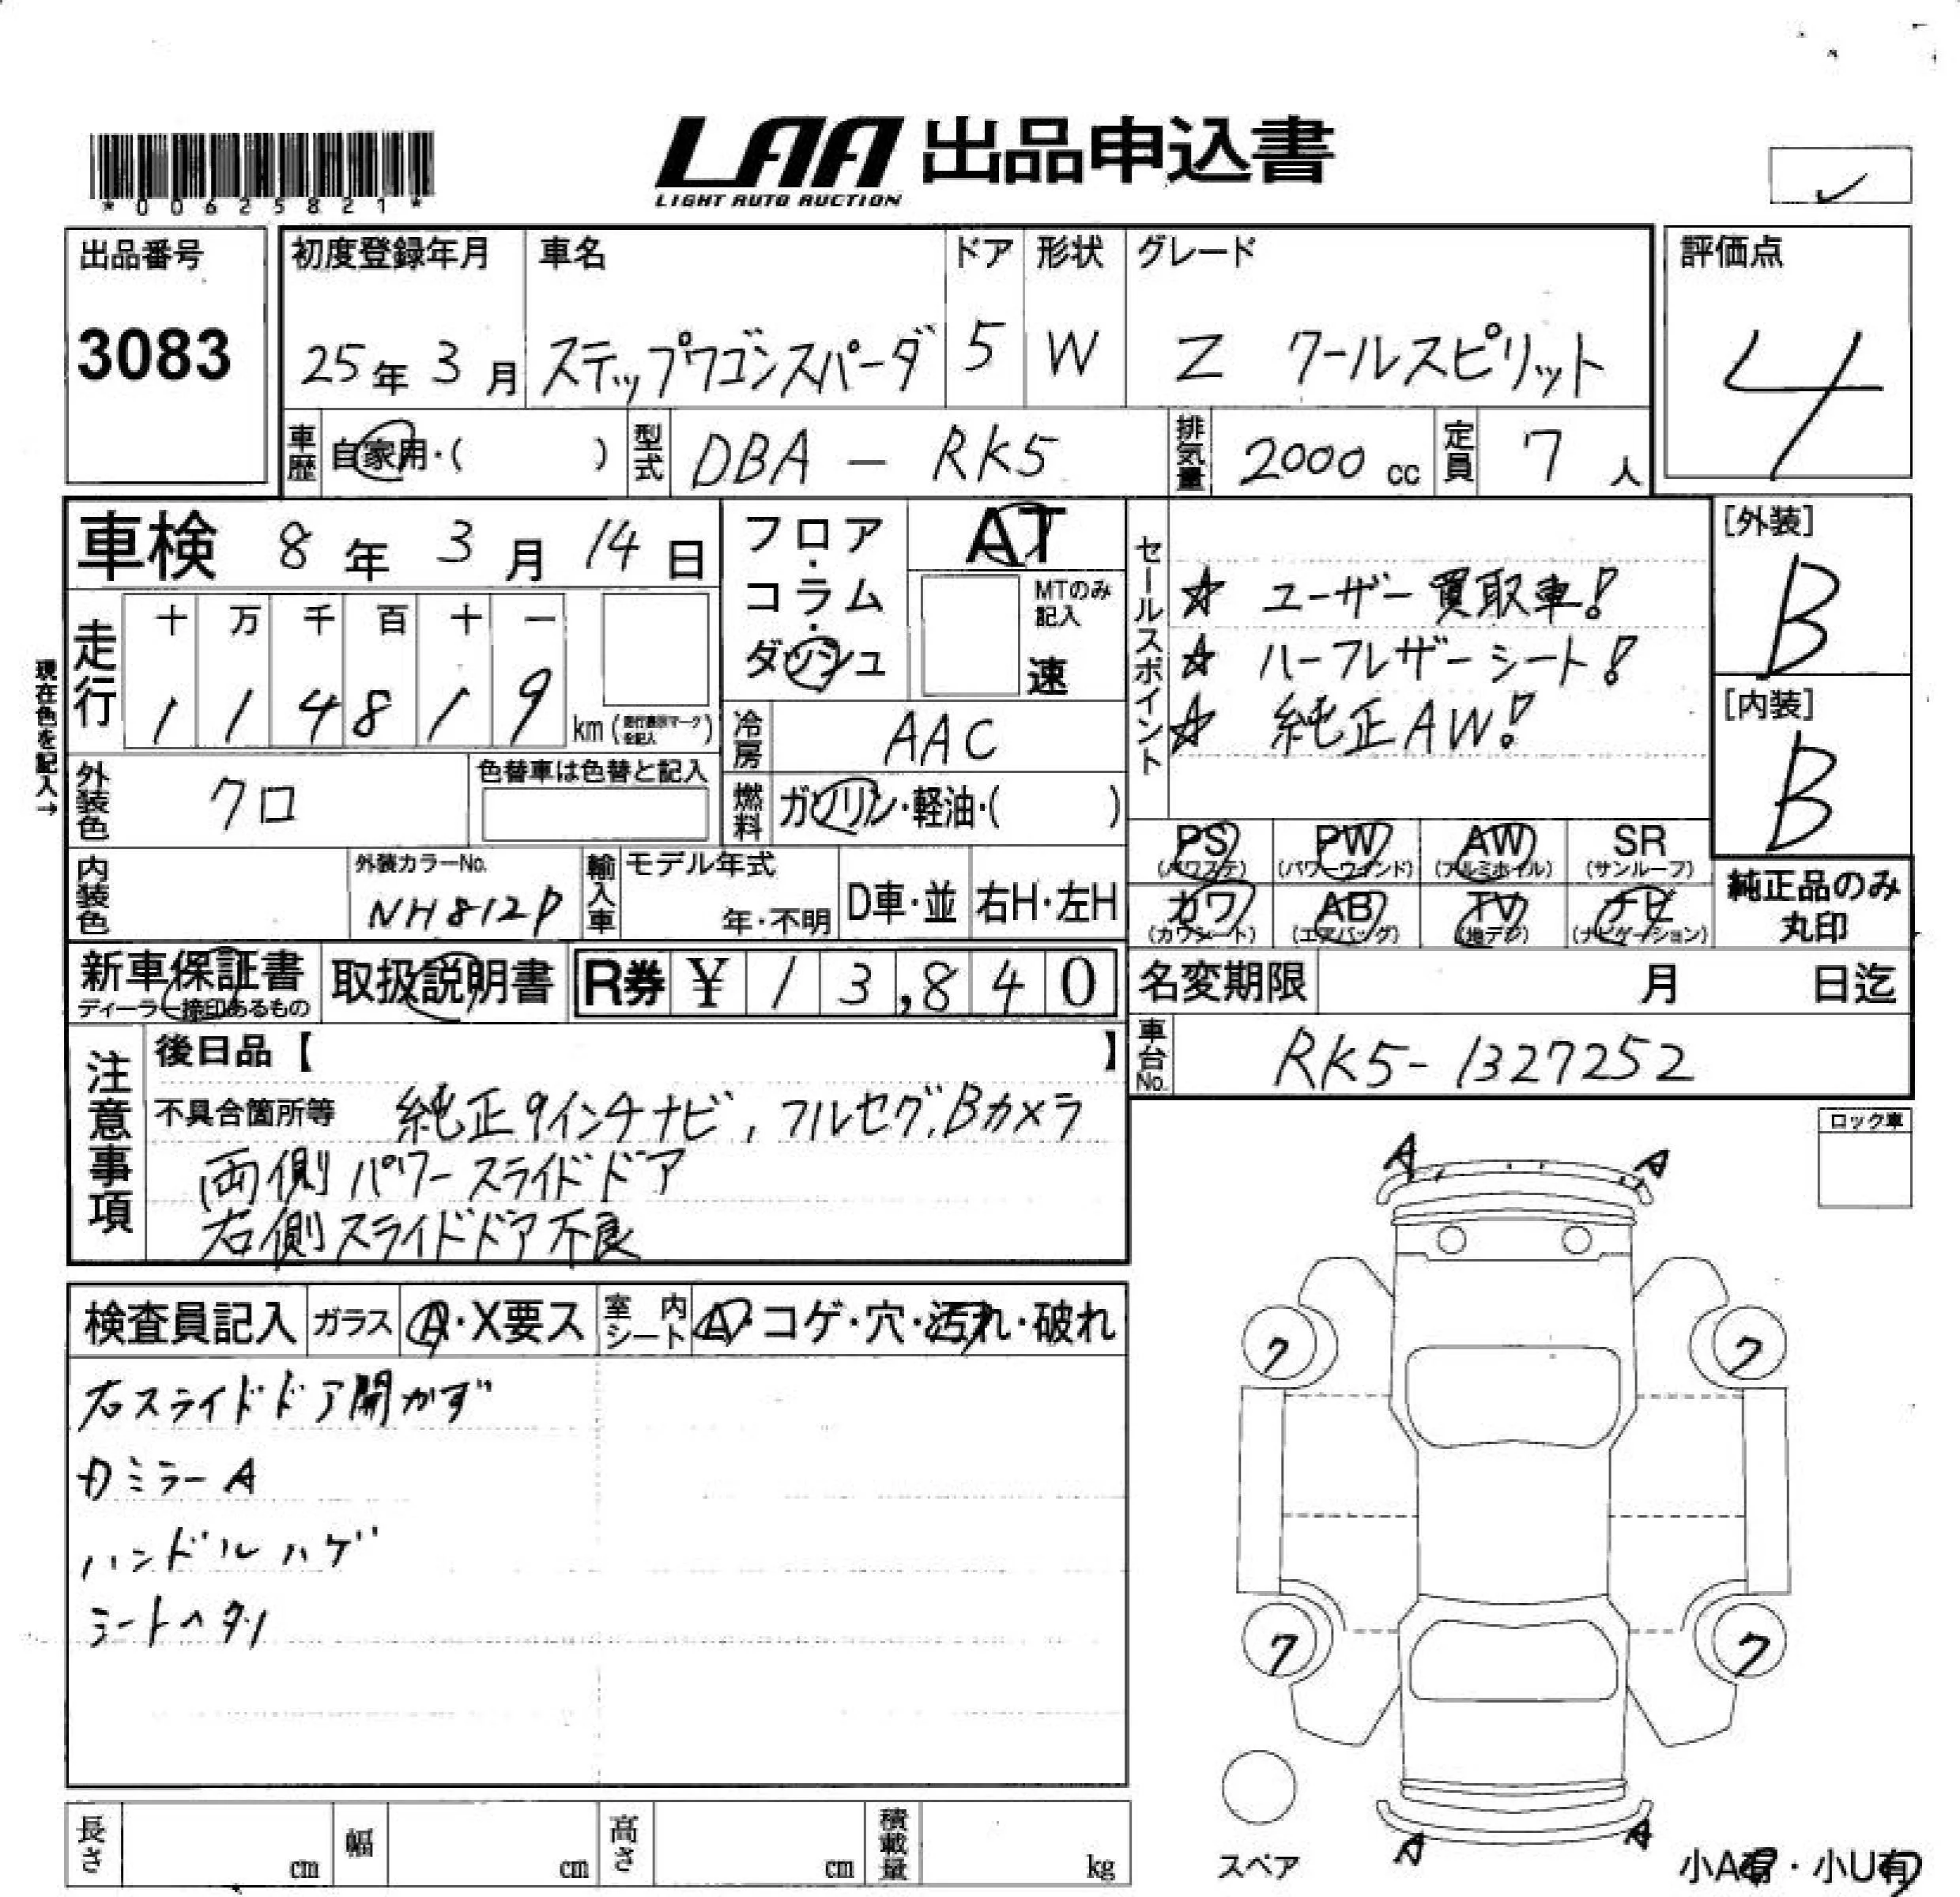 LAA 出品申込書
LIGHT AUTO AUCTION
*00625821*
出品番号
3083
初度登録年月
25年 3月
車名
ステップワゴンスパーダ
ドア
5
形状
W
グレード
Z クールスピリット
評価点
4
車歴 自家用・( )
型式 DBA - RK5
排気量 2000 cc
定員 7 人
車検 8年 3月 14日
走行
十 万 千 百 十 一
1 1 4 8 1 9 km (走行表示マークを記入)
現在色を記入→
外装色 クロ
色替車は色替と記入
内装色
外装カラーNo.
NH812P
フロア・コラム・ダッシュ
AT
MTのみ記入
速
冷房 AAC
燃料 ガソリン・軽油・( )
輸入車
モデル年式
年・不明
D車・並
右H・左H
セールスポイント
☆ ユーザー買取車!
☆ ハーフレザーシート!
☆ 純正AW!
[外装]
B
[内装]
B
PS (パワステ)
PW (パワーウインド)
AW (アルミホイル)
SR (サンルーフ)
カワ (カワシート)
AB (エアバッグ)
TV (地デジ)
ナビ (ナビゲーション)
純正品のみ丸印
新車保証書
ディーラー捺印あるもの
取扱説明書
R券 ¥ 13,840
名変期限 月 日迄
車台No. RK5-1327252
注意事項
後日品【 】
不具合箇所等 純正9インチナビ, フルセグ, Bカメラ
両側パワースライドドア
右側スライドドア不良
ロック車
検査員記入
ガラス A・X要ス
室内シート A・コゲ・穴・汚れ・破れ
右スライドドア開かず
カミラーA
ハンドルハゲ
シートヘタリ
A A
ク ク
ク ク
A A
スペア
小A有・小U有
長さ cm
幅 cm
高さ cm
積載量 kg